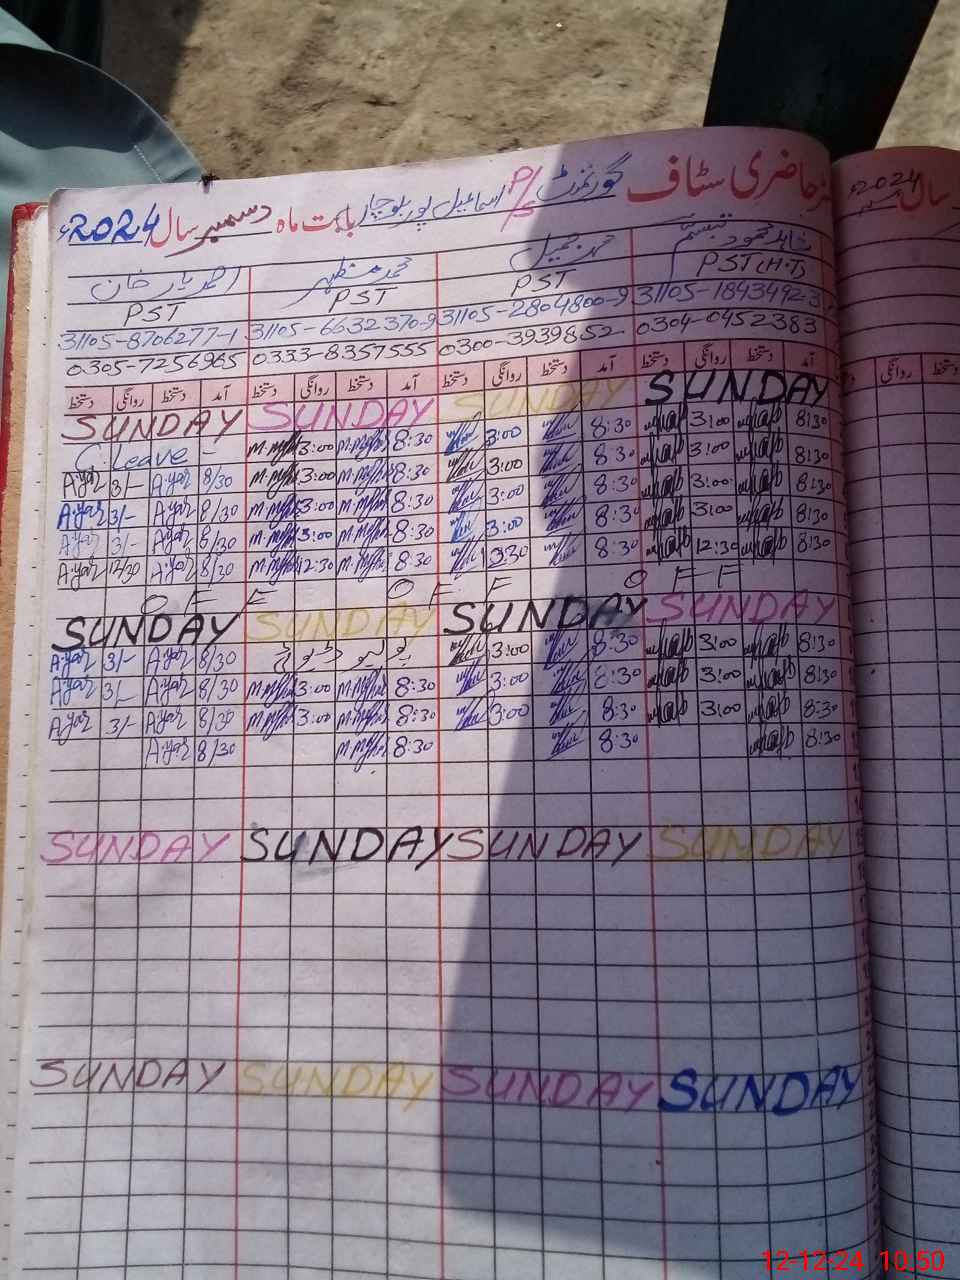 حاضری سٹاف گورنمنٹ P/S اسماعیل پور بلوچاں بابت ماہ دسمبر سال 2024ء
شاہد محمود تبسم محمد جمیل محمد مظہر احمد یار خان
PST (H.T) PST PST PST
31105-1843492-3 31105-2804800-9 31105-6632370-9 31105-8706277-1
0304-0452383 0300-3939852 0333-8357555 0305-7256965
آمد دستخط روانگی دستخط آمد دستخط روانگی دستخط آمد دستخط روانگی دستخط آمد دستخط روانگی دستخط
SUNDAY SUNDAY SUNDAY SUNDAY
C. Leave - 3:00 8:30 3:00 8:30 3:00 8:30
Ayar 3/- Ayar 8/30 3:00 8:30 3:00 8:30 3:00 8:30
Ayar 3/- Ayar 8/30 3:00 8:30 3:00 8:30 3:00 8:30
Ayar 3/- Ayar 8/30 3:00 8:30 3:00 8:30 3:00 8:30
Ayar 12/30 Ayar 8/30 12:30 8:30 12:30 8:30 12:30 8:30
OFF OFF OFF
SUNDAY SUNDAY SUNDAY SUNDAY
Ayar 3/- Ayar 8/30 پولیو ڈیوٹی 3:00 8:30 3:00 8:30
Ayar 3/- Ayar 8/30 3:00 8:30 3:00 8:30 3:00 8:30
Ayar 3/- Ayar 8/30 3:00 8:30 3:00 8:30 3:00 8:30
Ayar 8/30 8:30 8:30 8:30
SUNDAY SUNDAY SUNDAY SUNDAY
SUNDAY SUNDAY SUNDAY SUNDAY
سال 2024ء
روانگی دستخط
12-12-24 10.50